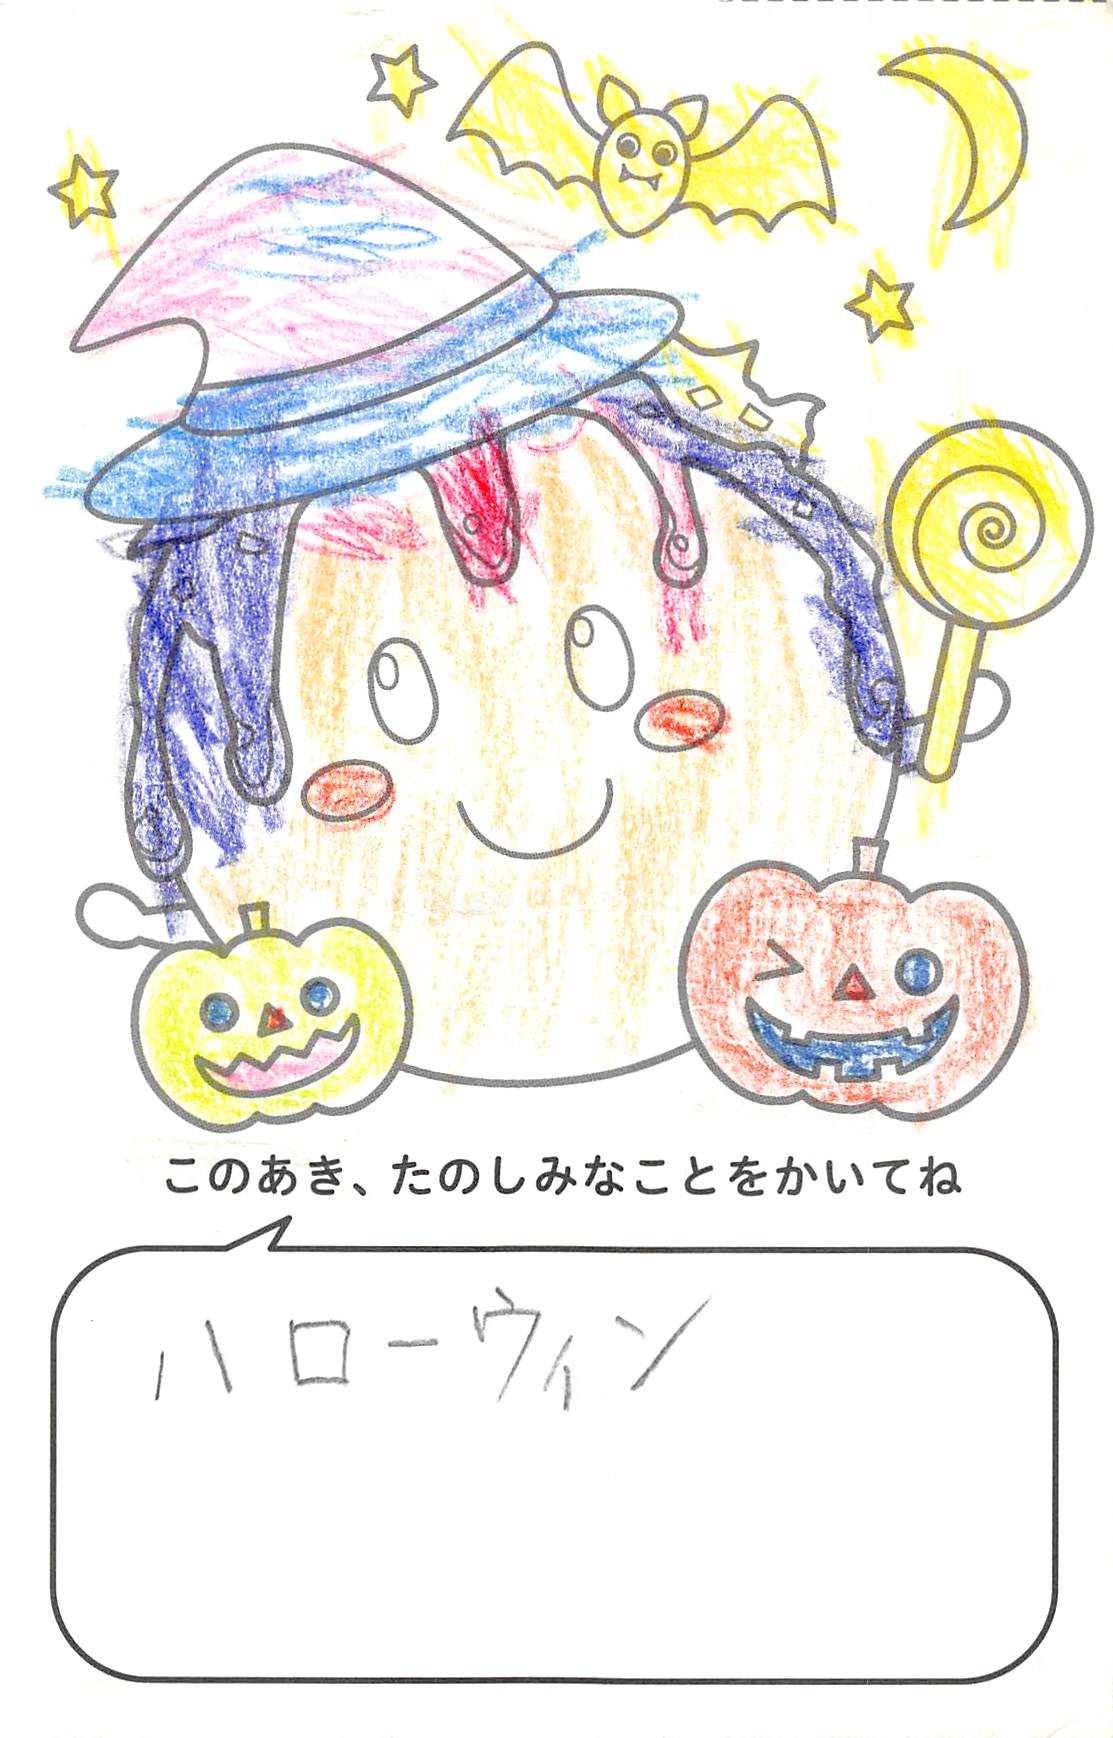 このあき、たのしみなことをかいてね
ハローウィン